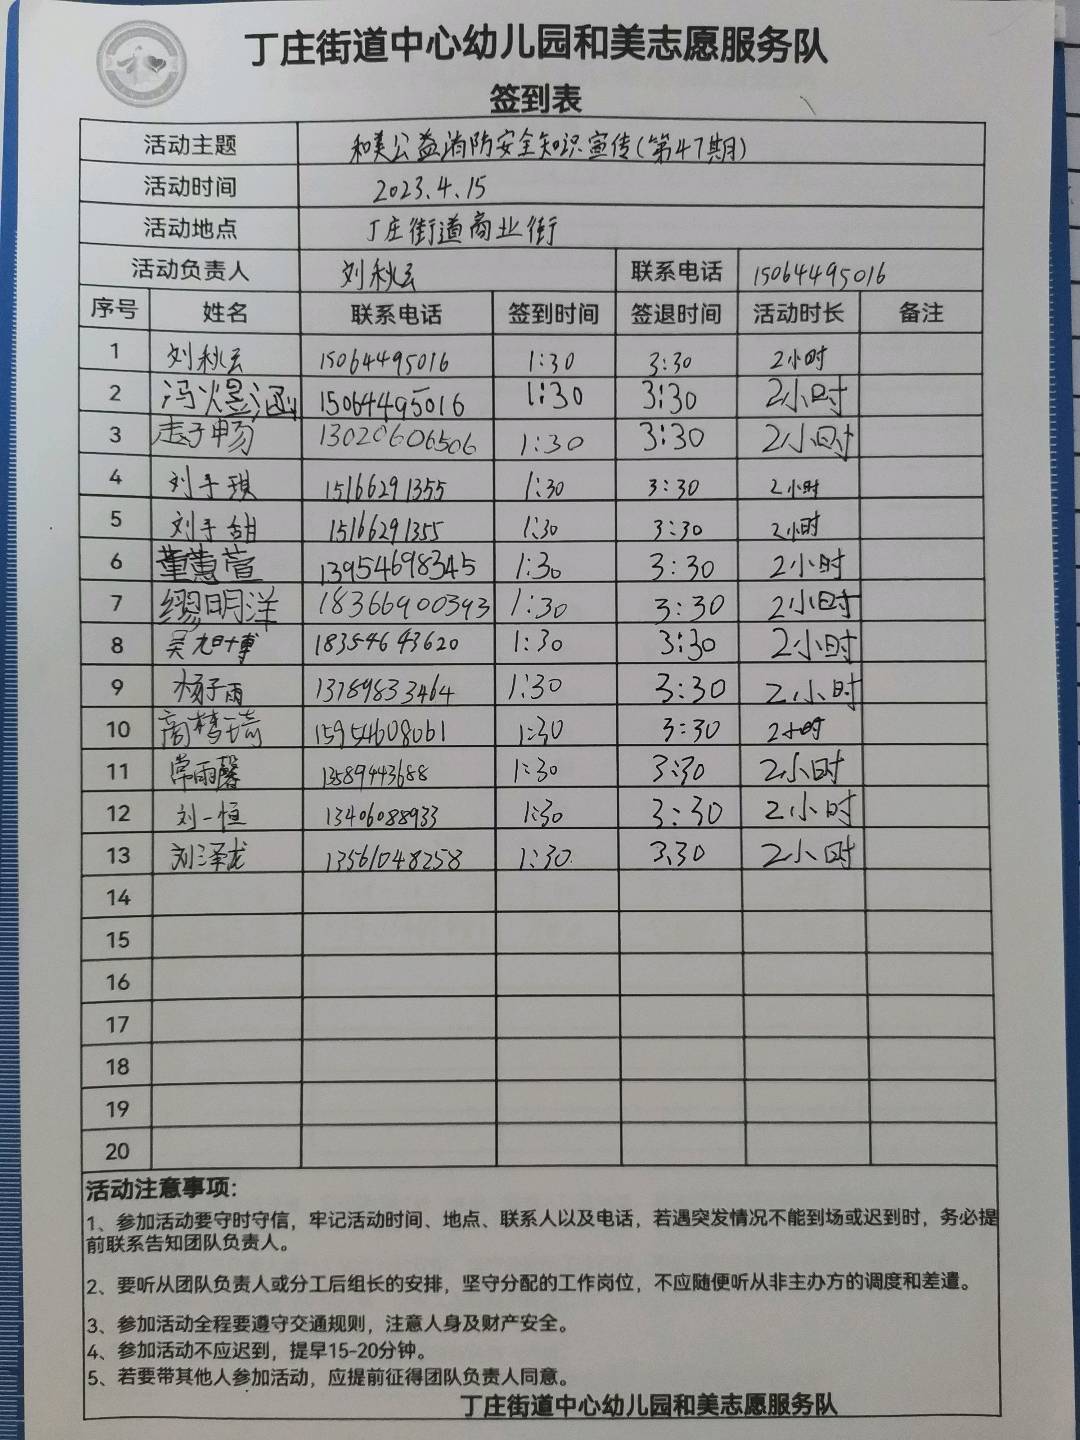 丁庄街道中心幼儿园和美志愿服务队
签到表
活动主题 和美公益消防安全知识宣传(第47期)
活动时间 2023.4.15
活动地点 丁庄街道商业街
活动负责人 刘秋云 联系电话 15064495016
序号 姓名 联系电话 签到时间 签退时间 活动时长 备注
1 刘秋云 15064495016 1:30 3:30 2小时
2 冯煜涵 15064495016 1:30 3:30 2小时
3 子畅 13020606506 1:30 3:30 2小时
4 刘子琪 15166291355 1:30 3:30 2小时
5 刘子甜 15166291355 1:30 3:30 2小时
6 董蕙萱 13954698345 1:30 3:30 2小时
7 缪明洋 18366900393 1:30 3:30 2小时
8 吴旭博 18354643620 1:30 3:30 2小时
9 杨子雨 13789833464 1:30 3:30 2小时
10 商梦琦 15954608061 1:30 3:30 2小时
11 常雨馨 13589443688 1:30 3:30 2小时
12 刘一恒 13406088933 1:30 3:30 2小时
13 刘泽龙 13561048258 1:30 3:30 2小时
14
15
16
17
18
19
20
活动注意事项:
1、参加活动要守时守信，牢记活动时间、地点、联系人以及电话，若遇突发情况不能到场或迟到时，务必提
前联系告知团队负责人。
2、要听从团队负责人或分工后组长的安排，坚守分配的工作岗位，不应随便听从非主办方的调度和差遣。
3、参加活动全程要遵守交通规则，注意人身及财产安全。
4、参加活动不应迟到，提早15-20分钟。
5、若要带其他人参加活动，应提前征得团队负责人同意。
丁庄街道中心幼儿园和美志愿服务队